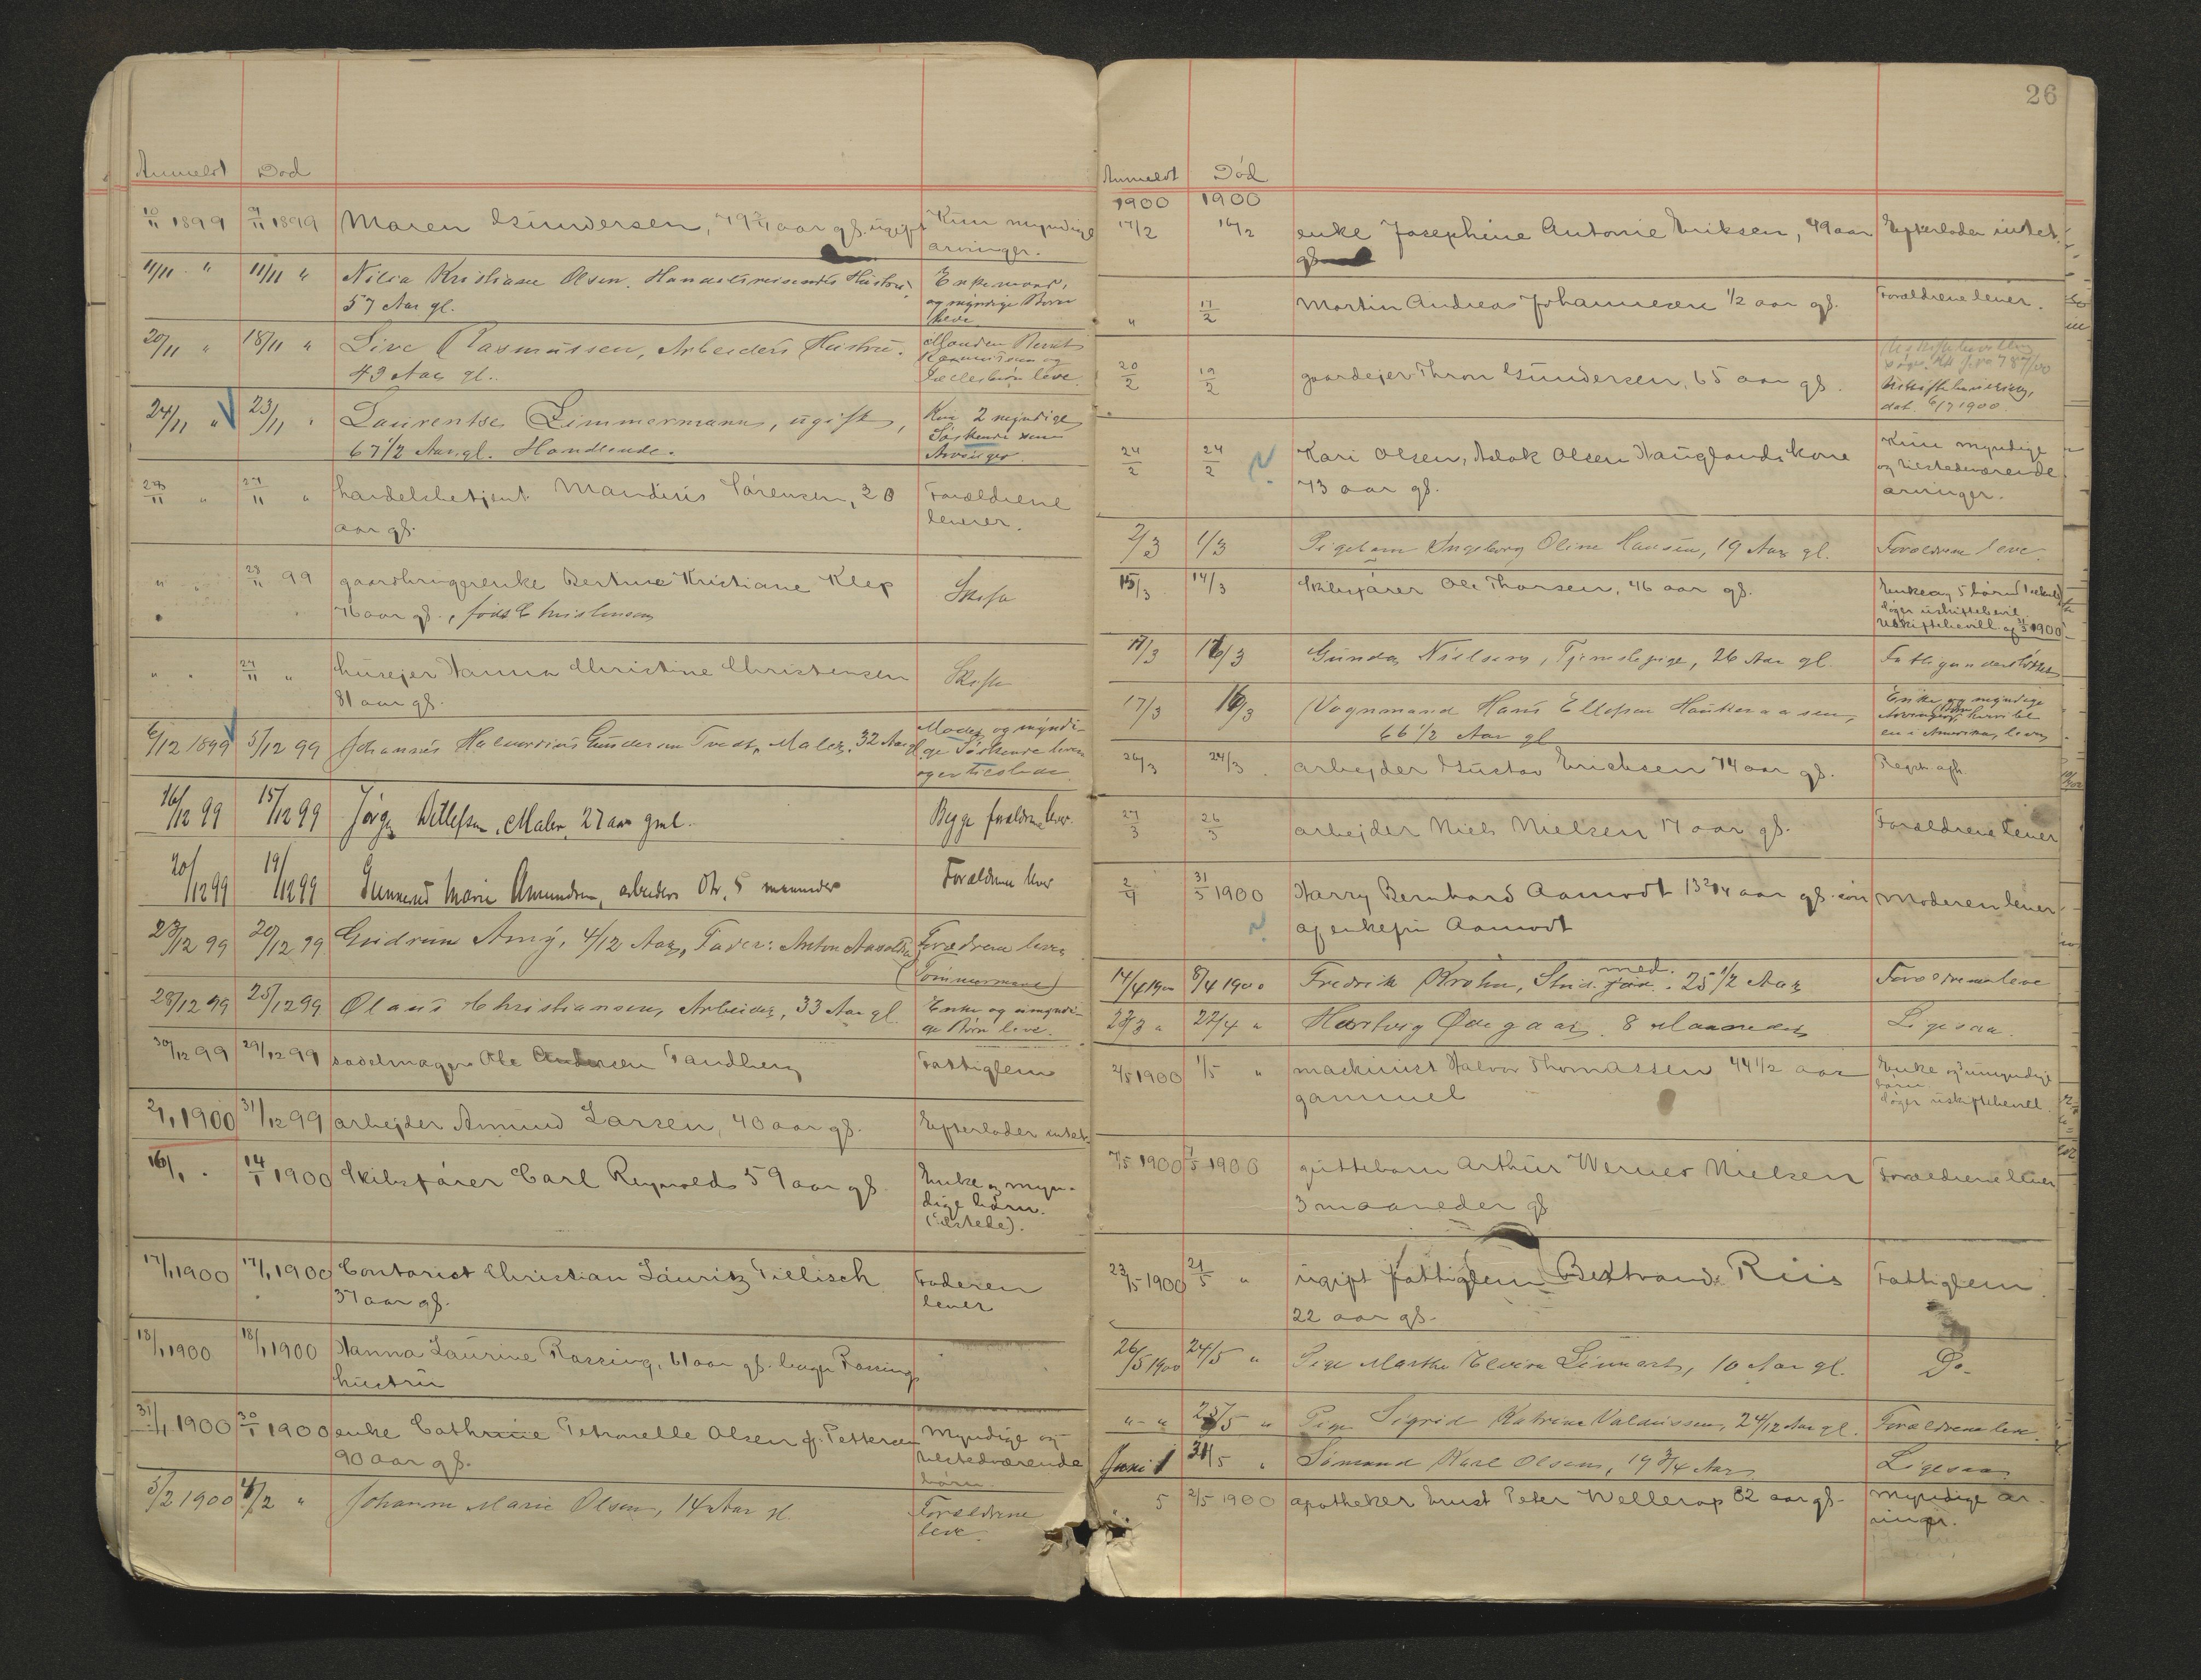 Anmeldt Død
10/11 1899 9/11 1899 Maren Gundersen, 79 3/4 aar gl. ugift Kun myndige
arvinger.
11/11 " 11/11 " Nilia Kristiane Olsen. Handelsreisendes Hustru, Enkemand,
57 Aar gl. og myndige Børn
leve
20/11 " 18/11 " Live Rasmussen, Arbeiders Hustru. Manden Bernt
43 Aar gl. Rasmussen og
Fællesbørn leve.
24/11 " 23/11 " Laurentse Zimmermann, ugift, Kun 2 myndige
67 1/2 Aar gl. Handlende. Søskende som
Arvinger.
27/11 " handelsbetjent Mandius Sørensen, 20 Forældrene
aar gl. lever.
" " 23/11 99 gaardbrugerenke Bertine Kristiane Klep Skifte
76 aar gl., født Christensen
" " 27/11 " husejer Hanna Christine Christensen Skifte
81 aar gl.
6/12 1899 5/12 99 Johannes Halvorsius Gundersen Tvedt, Maler, 32 Aar gl. Moder og myndi-
ge Søskende leve
og er tilstede.
16/12 99 15/12 99 Jørgen Ditlefsen, Maler, 27 aar gml. Begge forældre lever.
20/12 99 19/12 99 Marie Amundsen, arbeiders Dtr. 5 maaneder Forældrene lever
23/12 99 20/12 99 Gudrun Amy, 4/12 Aar, Fader: Anton Forældrene leve
(Tømmermand)
28/12 99 25/12 99 Olaus Christiansen, Arbeider, 33 Aar gl. Enke og umyndi-
ge Børn leve.
30/12 99 29/12 99 sadelmager Ole Andersen Sandberg Fattiglem
2/1 1900 31/12 99 arbejder Amund Larsen, 40 aar gl. Efterlader intet.
16/1 " 14/1 1900 Skibsfører Carl Reynolds 59 aar gl. Enke og myn-
dige børn.
(tilstede).
17/1 1900 17/1 1900 Contorist Christian Lauritz Tiellisch Faderen
37 aar gl. lever
18/1 1900 18/1 1900 Hanna Laurine Rassing, 61 aar gl. Rassings
hustru
31/1 1900 30/1 1900 enke Cathrine Petronelle Olsen f. Pettersen Myndige og
90 aar gl. tilstedværende
børn.
5/2 1900 4/2 " Johanne Marie Olsen, 14 Aar gl. Forældrene
leve.
26
Anmeldt Død
1900 1900
17/2 16/2 enke Josephine Antonie Eriksen, 49 aar Efterlader intet.
gl.
" 17/2 Martin Andreas Johannesen 1/2 aar gl. Forældrene lever.
20/2 19/2 gaardejer Thron Gundersen, 65 aar gl. Uskiftebevilling
dat. 6/7 1900.
24/2 24/2 Kari Olsen, Aslak Olsen Hauglands kone Kun myndige
73 aar gl. og tilstedeværende
arvinger.
2/3 1/3 Pigebarn Ingeborg Oline Hansen, 19 Aar gl. Forældrene leve.
15/3 14/3 Skibsfører Ole Thorsen, 46 aar gl. Enke og 5 børn
søger uskiftebevil.
Uskiftebevill. af 31/3 1900
17/3 16/3 Gunda Nielsen, Tjenestepige, 26 Aar gl. Fattigunderstøttet
17/3 16/3 Vognmand Hans Ellefsen Haukeraasen, Enke og myndige
66 1/2 Aar gl Arvinger, hvoraf
en i Amerika, leve
26/3 24/3 arbejder Gustav Erichsen 74 aar gl. Regst. afh.
27/3 26/3 arbejder Niels Nielsen 17 aar gl. Forældrene lever
2/4 31/3 1900 Harry Bernhard Aamodt 13 2/4 aar gl. søn Moderen lever
af enkefru Aamodt
14/4 1900 8/4 1900 Fredrik Krohn, Stud. med. 25 1/2 Aar Forældrene leve
23/3 " 22/4 " Hartvig Ødegaard. 8 Maaneder Ligesaa.
2/5 1900 1/5 " maskinist Halvor Thomassen 44 1/2 aar Enke og umyndige
gammel børn
søger uskiftebevill.
7/5 1900 7/5 1900 guttebarn Arthur Werner Nielsen Forældrene lever
3 maaneder gl
23/5 1900 21/5 " ugift fattiglem Bertrand Riis Fattiglem
22 aar gl.
26/5 1900 24/5 " Pige Marthe Elvira Linnart, 10 Aar gl. Do.
" - " 25/5 " Pige Sigrid Katrine Valdussen, 24/12 Aar gl. Forældrene leve.
Juni 1 31/5 " Sømand Karl Olsen, 19 3/4 Aar Ligesaa
" 5 2/5 1900 apotheker Ernst Peter Wellerop 82 aar gl. Myndige ar-
vinger.